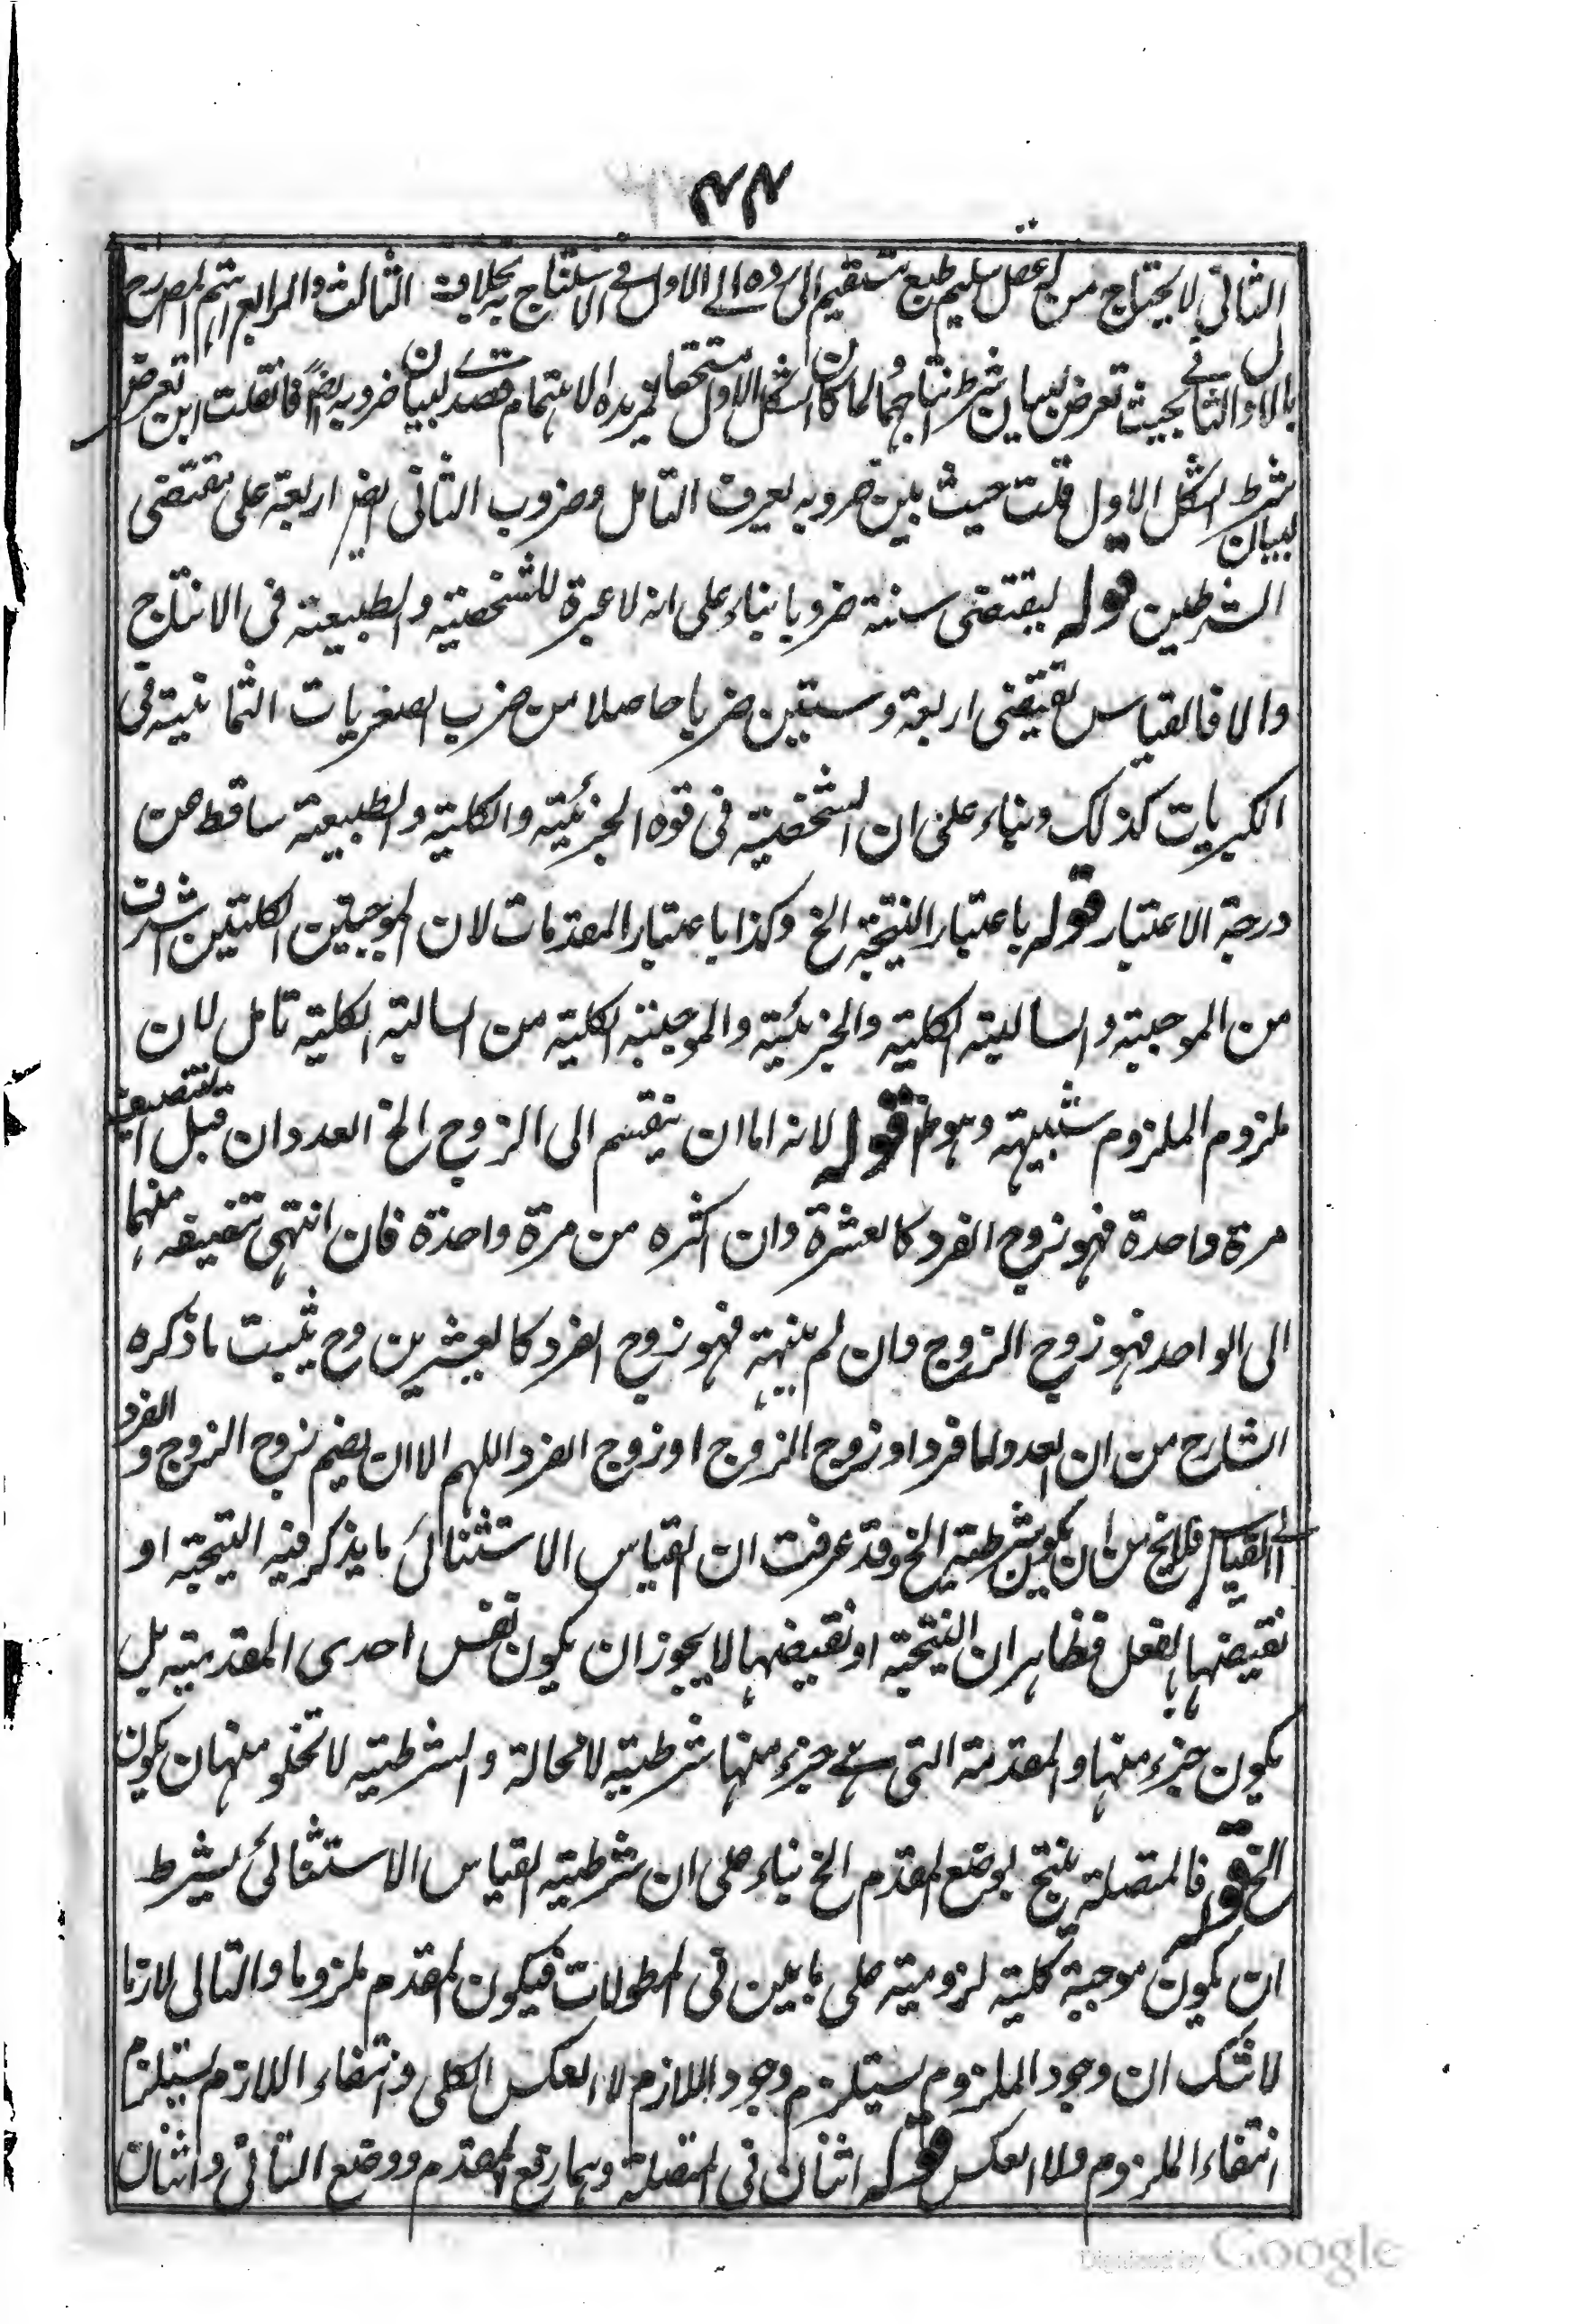 ۴۴
الثاني لا يحتاج من له عقل سليم طبع مستقيم الى رده الى الاول في الاستنتاج به بخلاف الثالث والرابع اهتم المصرح
بالاول والثاني بحيث تعرض لبيان شرط انتاجهما ولما كان الشكل الاول مستحقا لمزيد الاهتمام قصد لبيان ضروبه ايضا فان قلت اين تعرض
لبيان شرط الشكل الاول قلت حيث بين ضروبه يعرف التامل وضروب الثاني ايضا اربعة على مقتضى
الشرطين قوله يقتضى ستة ضروبا بناء على انه لا عبرة للشخصية والطبيعية في الانتاج
والا فالقياس يقتضى اربعة وستين ضربا حاصلا من ضرب الصغريات الثمانية في
الكبريات كذلك وبناء على ان الشخصية في قوة الجزئية والكلية والطبيعية ساقط من
درجة الاعتبار قوله باعتبار النتيجة الخ وكذا باعتبار المقدمات لان الموجبتين الكليتين اشرف
من الموجبة والسالبة الكلية والجزئية والموجبة الكلية من السالبة الكلية تامل لان
ملزوم الملزوم شبيهة وهو ظ قوله لانه اما ان ينقسم الى الزوج الخ العدد ان قبل التنصيف
مرة واحدة فهو زوج الفرد كالعشرة وان اكثره من مرة واحدة فان انتهى تنصيفه منهما
الى الواحد فهو زوج الزوج وان لم ينهته فهو زوج الفرد كالعشرين وح يثبت ما ذكره
الشارح من ان العدد لما فرد او زوج الزوج او زوج الفرد اللهم الا ان يضم زوج الزوج و الفرد
الى القياس فلا يخ من ان يكون شرطية الخ وقد عرفت ان القياس الاستثنائي ما يذكر فيه النتيجة او
نقيضها بالفعل فظاهر ان النتيجة او نقيضها لا يجوز ان يكون نفس احدى المقدمتيه بل
يكون جزء منها والمقدمة التي هي جزء منها شرطية لا محالة والشرطية لا تخلو منها ان يكون
الخ قوله فالمتصلة ينتج بوضع المقدم الخ بناء على ان شرطية القياس الاستثنائي يشترط
ان يكون موجبة كلية لزومية على ما بين في المطولات فيكون المقدم ملزوما والتالي لازما
لا شك ان وجود الملزوم يستلزم وجود اللازم لا العكس الكلي وانتفاء اللازم يستلزم
انتفاء الملزوم ولا العكس قوله اثنان في المتصلة وهما رفع المقدم ووضع التالي واثنان
Digitized by Google